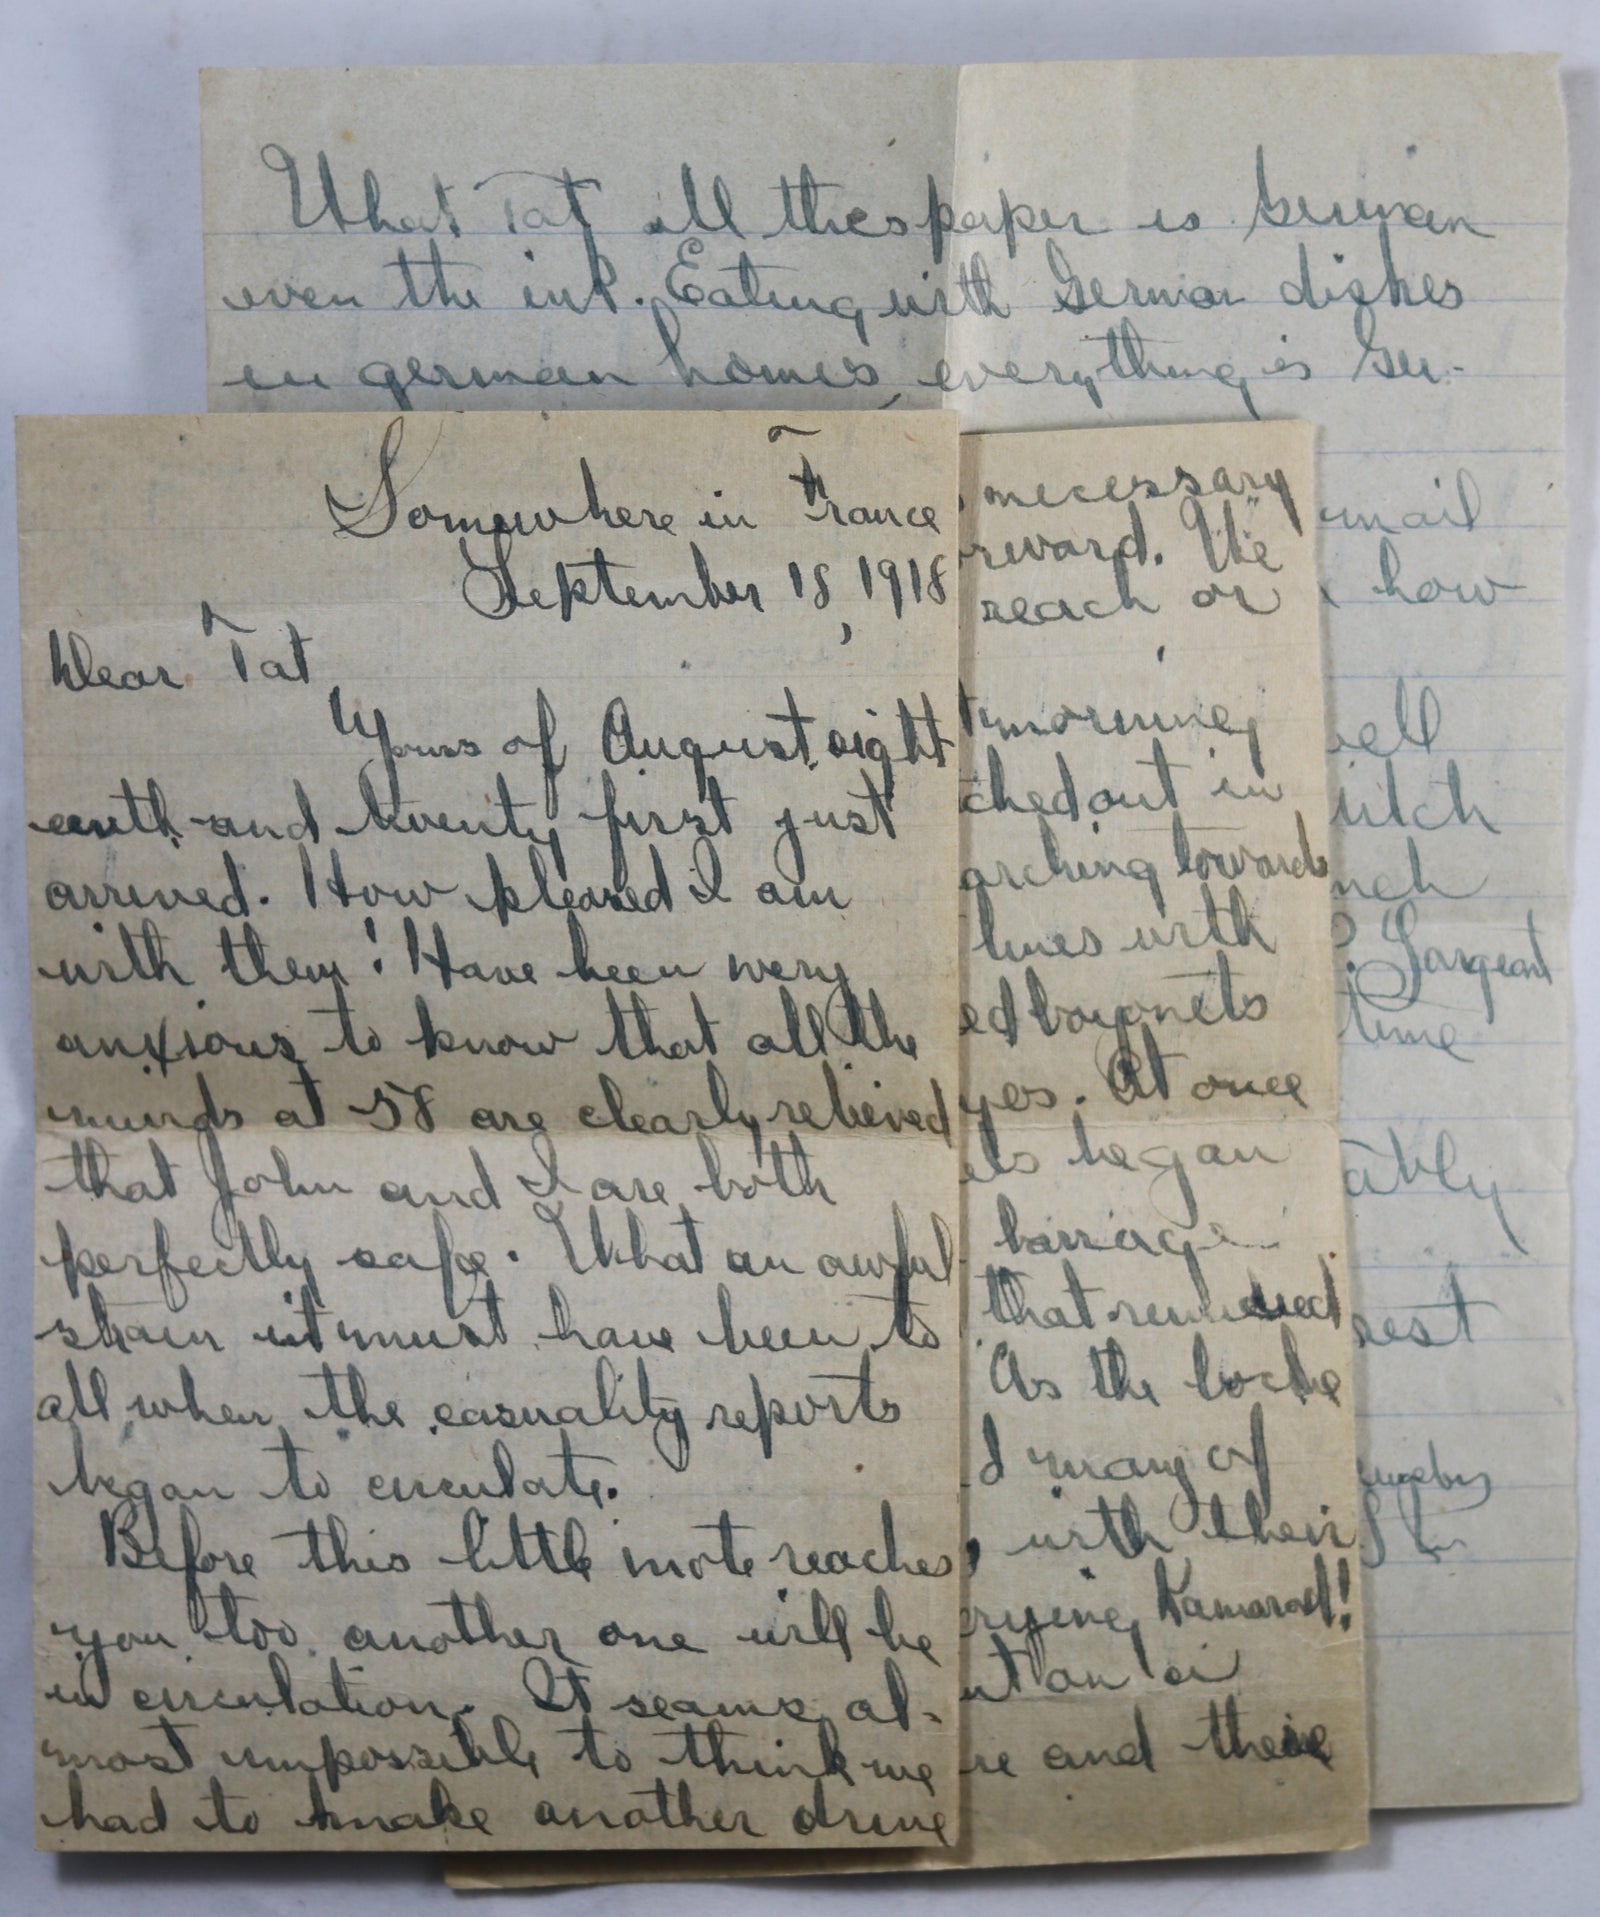 What Tat all this paper is German
even the ink. Eating with German dishes
in german homes, everything is Ger-
Somewhere in France
September 18, 1918
Dear Tat
Yours of August eight
eenth and twenty first just
arrived. How pleased I am
with them! Have been very
anxious to know that all the
minds at 58 are clearly relieved
that John and I are both
perfectly safe. What an awful
strain it must have been to
all when the casuality reports
began to circulate.
Before this little note reaches
you too another one will be
in circulation. It seams al-
most impossible to think we
had to make another drive
necessary
rward. We
reach or
morning
ched out in
arching towards
lines with
ed bayonets
yes. At once
els began
barrage
that remained
As the boche
d many of
, with their
crying Kamarad!
ut an
re and there
mail
how
ell
utch
nch
? Sargeant
time
ably
rest